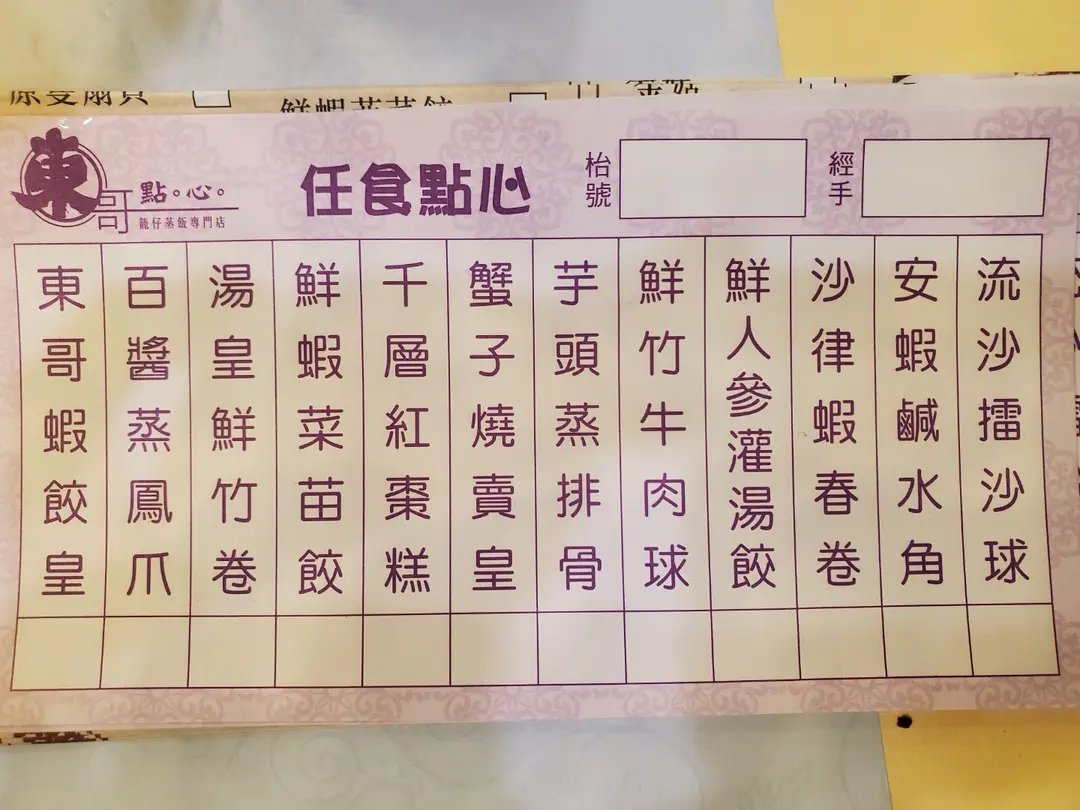 東哥
點。心。
籠仔蒸飯專門店
任食點心
枱號
經手
東哥蝦餃皇
百醬蒸鳳爪
湯皇鮮竹卷
鮮蝦菜苗餃
千層紅棗糕
蟹子燒賣皇
芋頭蒸排骨
鮮竹牛肉球
鮮人參灌湯餃
沙律蝦春卷
安蝦鹹水角
流沙擂沙球